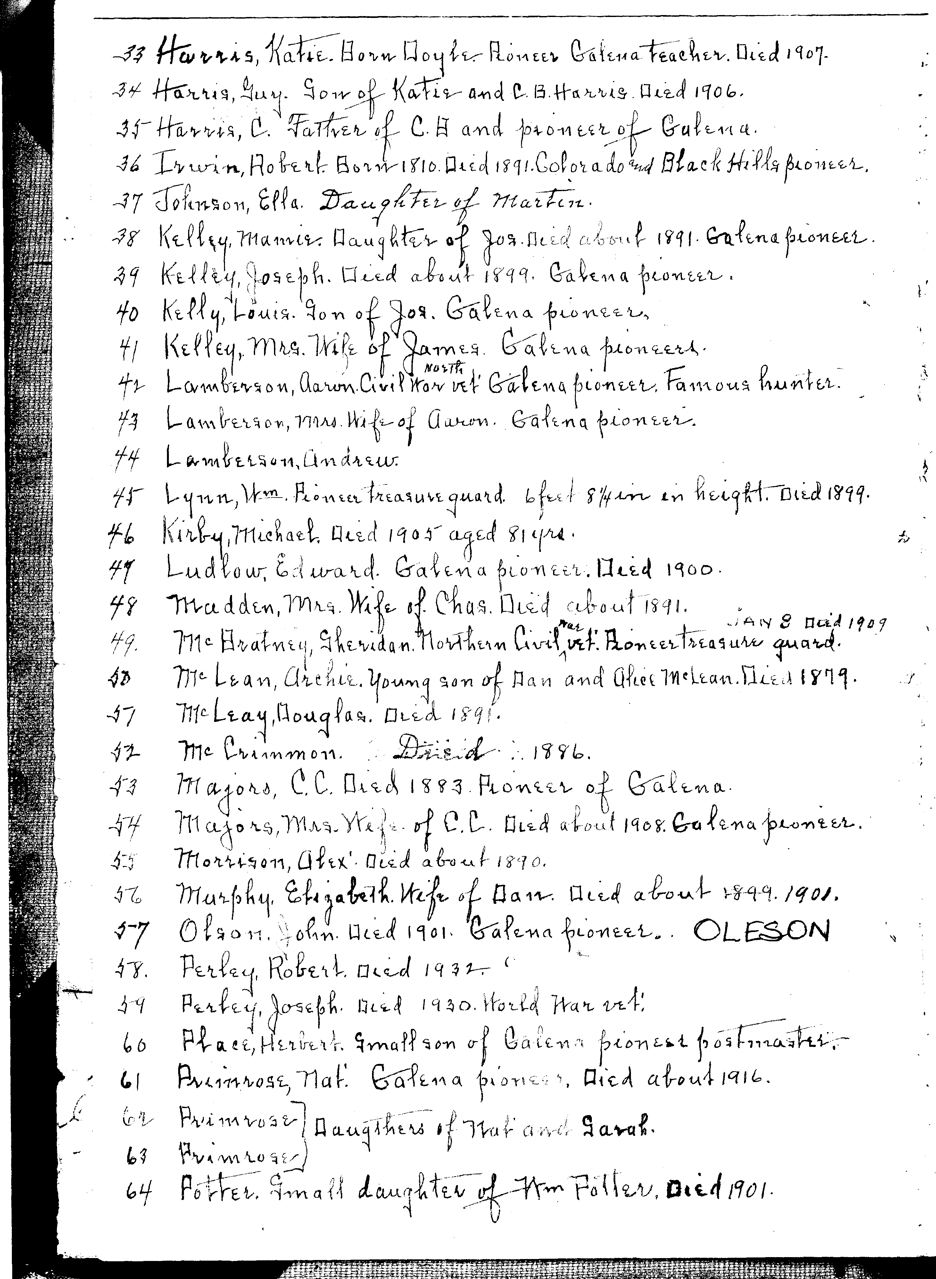 33 Harris, Katie. Born Doyle. Pioneer Galena teacher. Died 1907.
34 Harris, Guy. Son of Katie and C.B. Harris. Died 1906.
35 Harris, C. Father of C.B and pioneer of Galena.
36 Irwin, Robert. Born 1810. Died 1891. Colorado and Black Hills pioneer.
37 Johnson, Ella. Daughter of Martin.
38 Kelley, Mamie. Daughter of Jos. Died about 1891. Galena pioneer.
39 Kelley, Joseph. Died about 1899. Galena pioneer.
40 Kelly, Louis. Son of Jos. Galena pioneer.
41 Kelley, Mrs. Wife of James. Galena pioneers.
North
42 Lamberson, Aaron. Civil War vet' Galena pioneer. Famous hunter.
43 Lamberson, Mrs. Wife of Aaron. Galena pioneer.
44 Lamberson, Andrew.
45 Lynn, Wm. Pioneer treasure guard. 6 feet 8¼ in in height. Died 1899.
46 Kirby, Michael. Died 1905 aged 81 yrs.
47 Ludlow, Edward. Galena pioneer. Died 1900.
48 Madden, Mrs. Wife of Chas. Died about 1891.
JAN 8 Died 1909
49. McBratney, Sheridan. Northern Civil War vet'. Pioneer treasure guard.
50 McLean, Archie. Young son of Dan and Alice McLean. Died 1879.
51 McLeay, Douglas. Died 1891.
52 McCrimmon. Dried 1886.
53 Majors, C.C. Died 1883. Pioneer of Galena.
54 Majors, Mrs. Wife of C.C. Died about 1908. Galena pioneer.
55 Morrison, Alex'. Died about 1890.
56 Murphy, Elizabeth. Wife of Dan. Died about 1899. 1901.
57 Olson, John. Died 1901. Galena pioneer. OLESON
58. Perley, Robert. Died 1932.
59 Perley, Joseph. Died 1930. World War vet'.
60 Place, Herbert. Small son of Galena pioneer postmaster.
61 Primrose, Nat'. Galena pioneer. Died about 1916.
62 Primrose
Daugthers of Nat' and Sarah.
63 Primrose
64 Potter. Small daughter of Wm Potter. Died 1901.